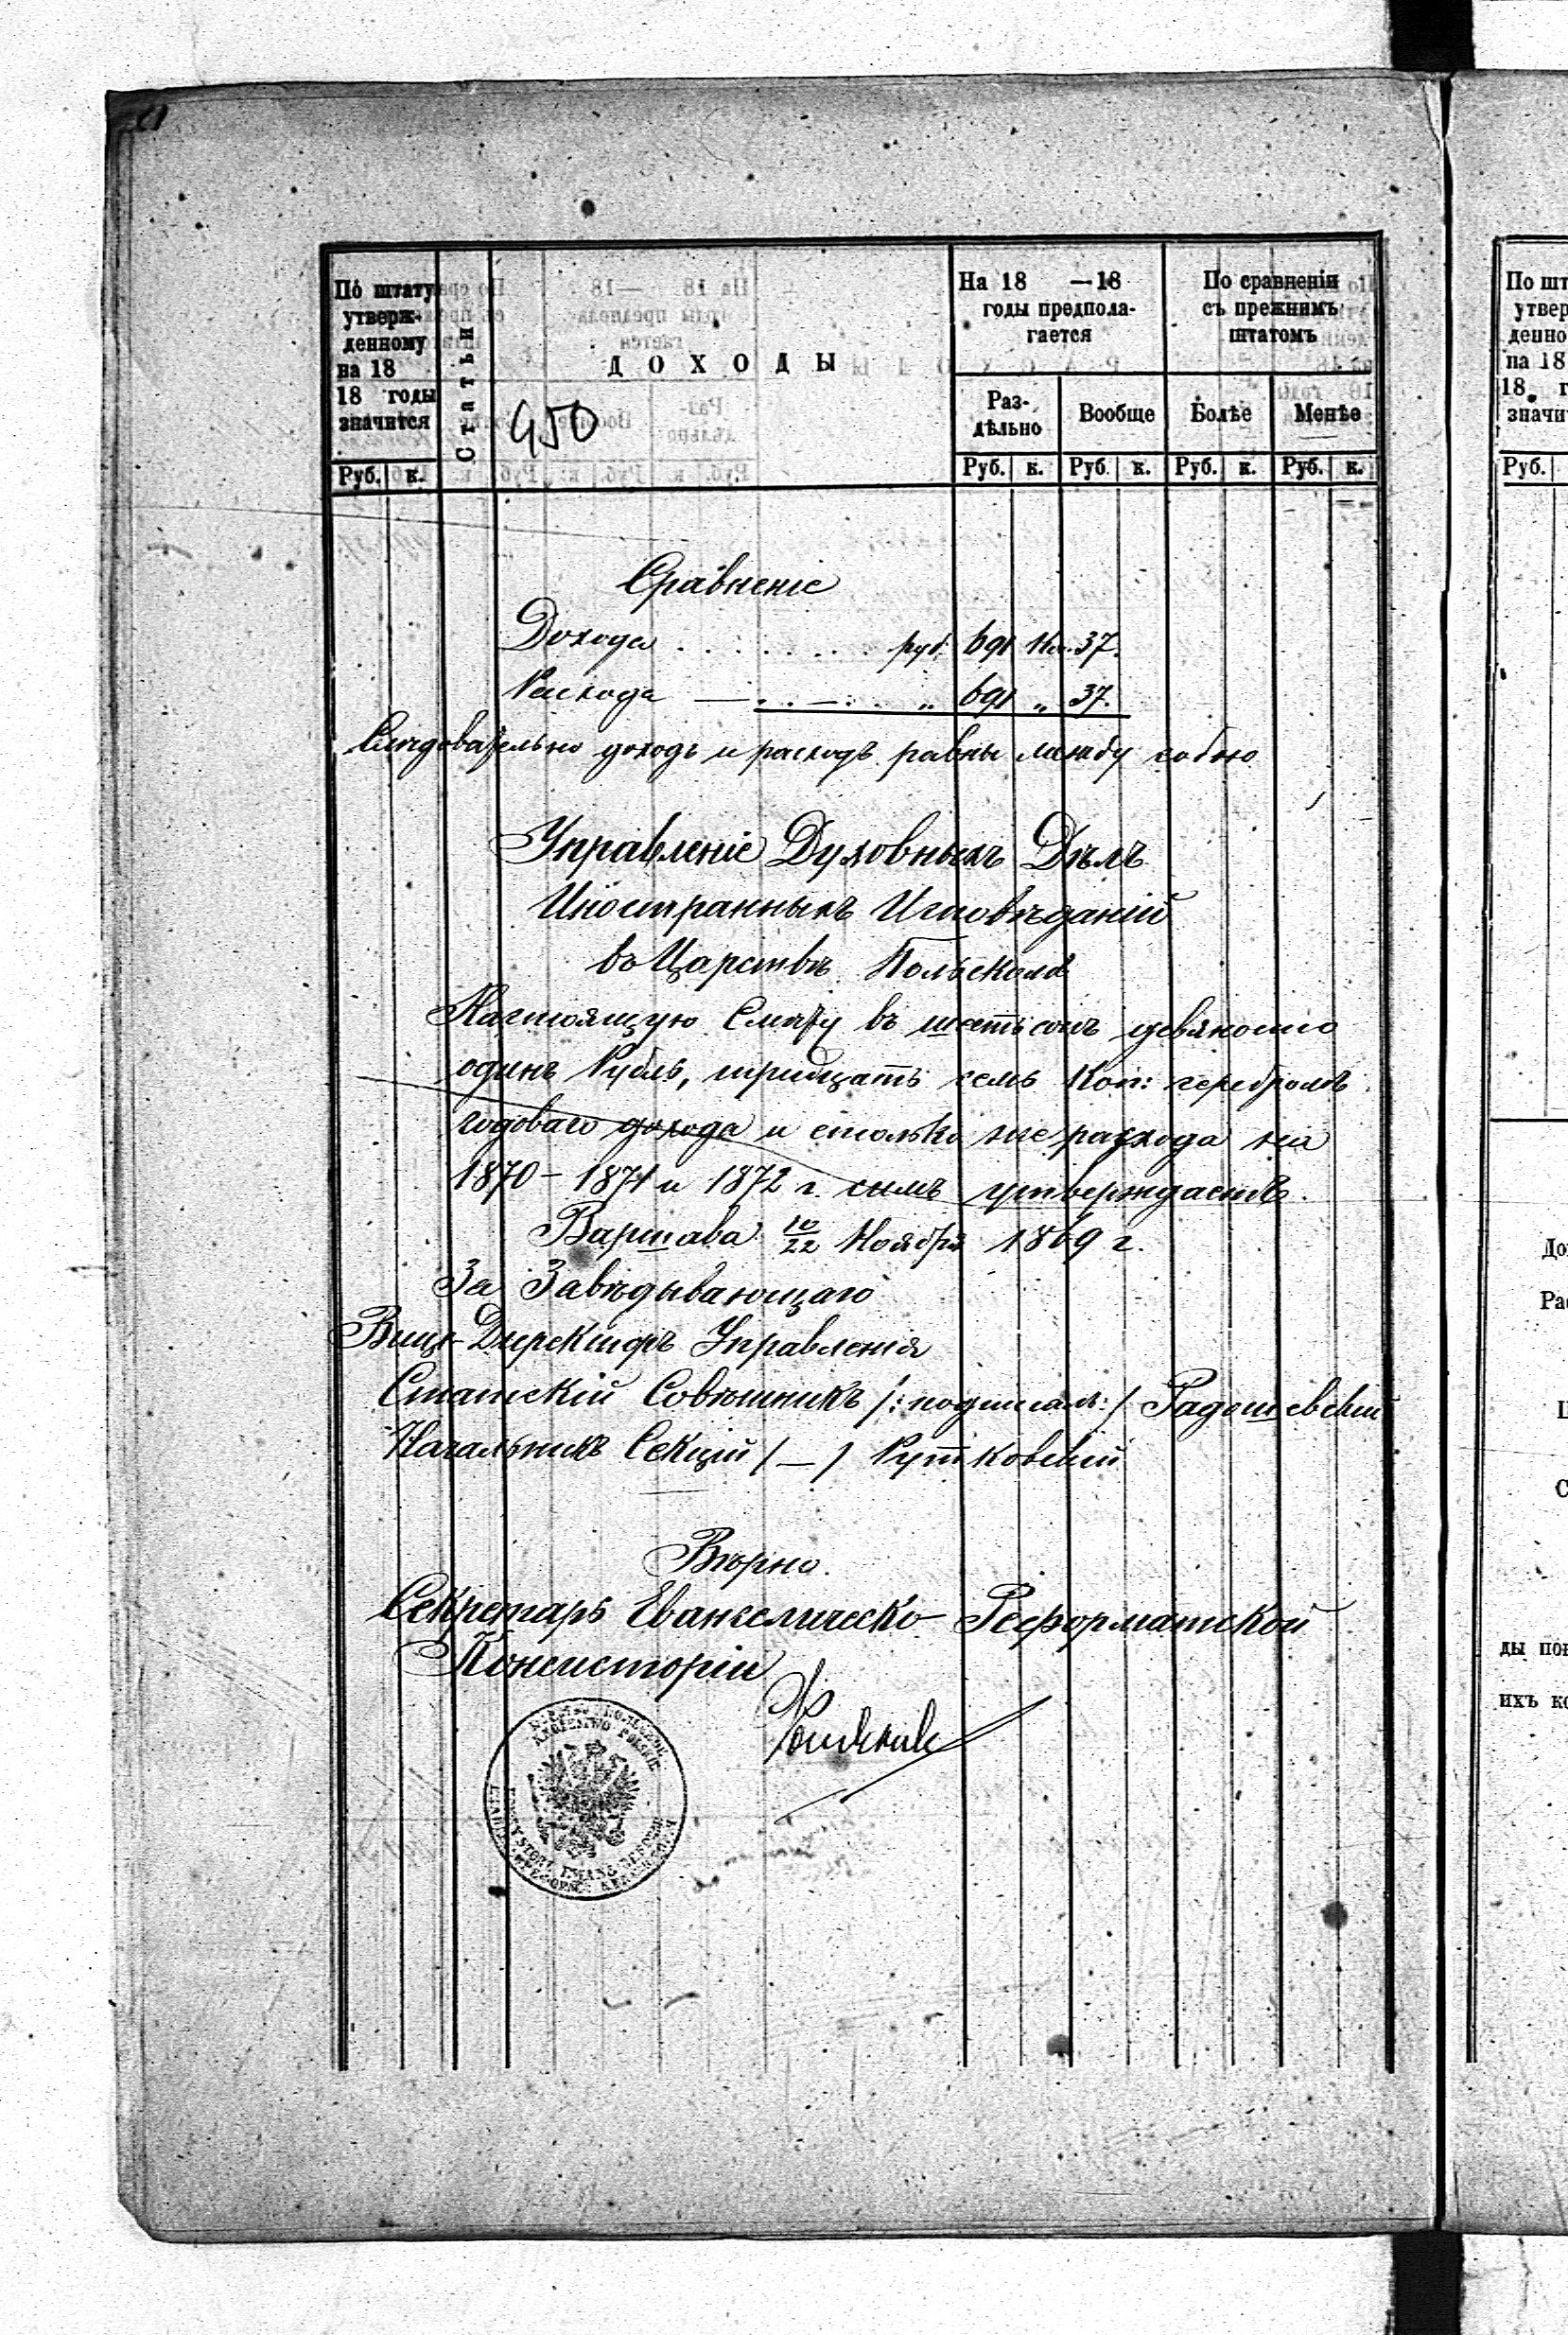 По штату
утверж-
денному
на 18
18 годы
значится
Статьи
ДОХОДЫ
На 18 —18
годы предпола-
гается
По сравненіи
съ прежнимъ
штатомъ
Раз-
дѣльно
Вообще
Болѣе
Менѣе
450
Руб. к. Руб. к. Руб. к. Руб. к. Руб. к.
Сравненіе
Дохода . . . . . . . руб. 691 Коп. 37.
Расхода — . . — . . „ 691 „ 37.
Слѣдовательно доходъ и расходъ равны между собою
Управленіе Духовныхъ Дѣлъ
Иностранныхъ Исповѣданій
въ Царствѣ Польскомъ
Настоящую Смѣту въ шестьсотъ девяносто
одинъ Рубль, тридцать семь Коп: серебромъ
годоваго дохода и столько же расхода на
1870 – 1871 и 1872 г. симъ утверждаетъ.
Варшава 10/22 Ноября 1869 г.
За Завѣдывающаго
Вице-Директоръ Управленія
Статскій Совѣтникъ /: подписалъ :/ Радошевскій
Начальникъ Секціи / — / Рутковскій
Вѣрно.
Секретарь Евангелическо-Реформатской
Консисторіи
KRÓLESTWO POLSKIE
По шт
утвер
денно
на 18
18 г
значи
Руб.
До
Ра
С
ды по
ихъ к